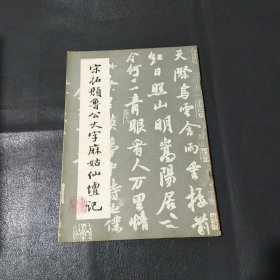 宋拓顏魯公大字麻姑仙壇記
天際烏雲含雨重樓前
紅日照山明嵩陽居士
今何在青眼看人万里情